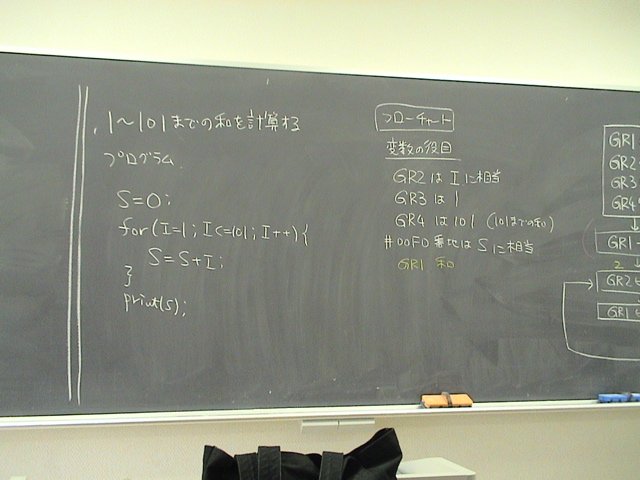 1〜101までの和を計算する
プログラム
S=0;
for(I=1; I<=101; I++){
S=S+I;
}
print(s);
フローチャート
変数の役目
GR2 は I に相当
GR3 は 1
GR4 は 101 (101までの和)
#00F0 番地は S に相当
GR1 和
GR1
GR2
GR3
GR4
GR1
2
GR2
GR1